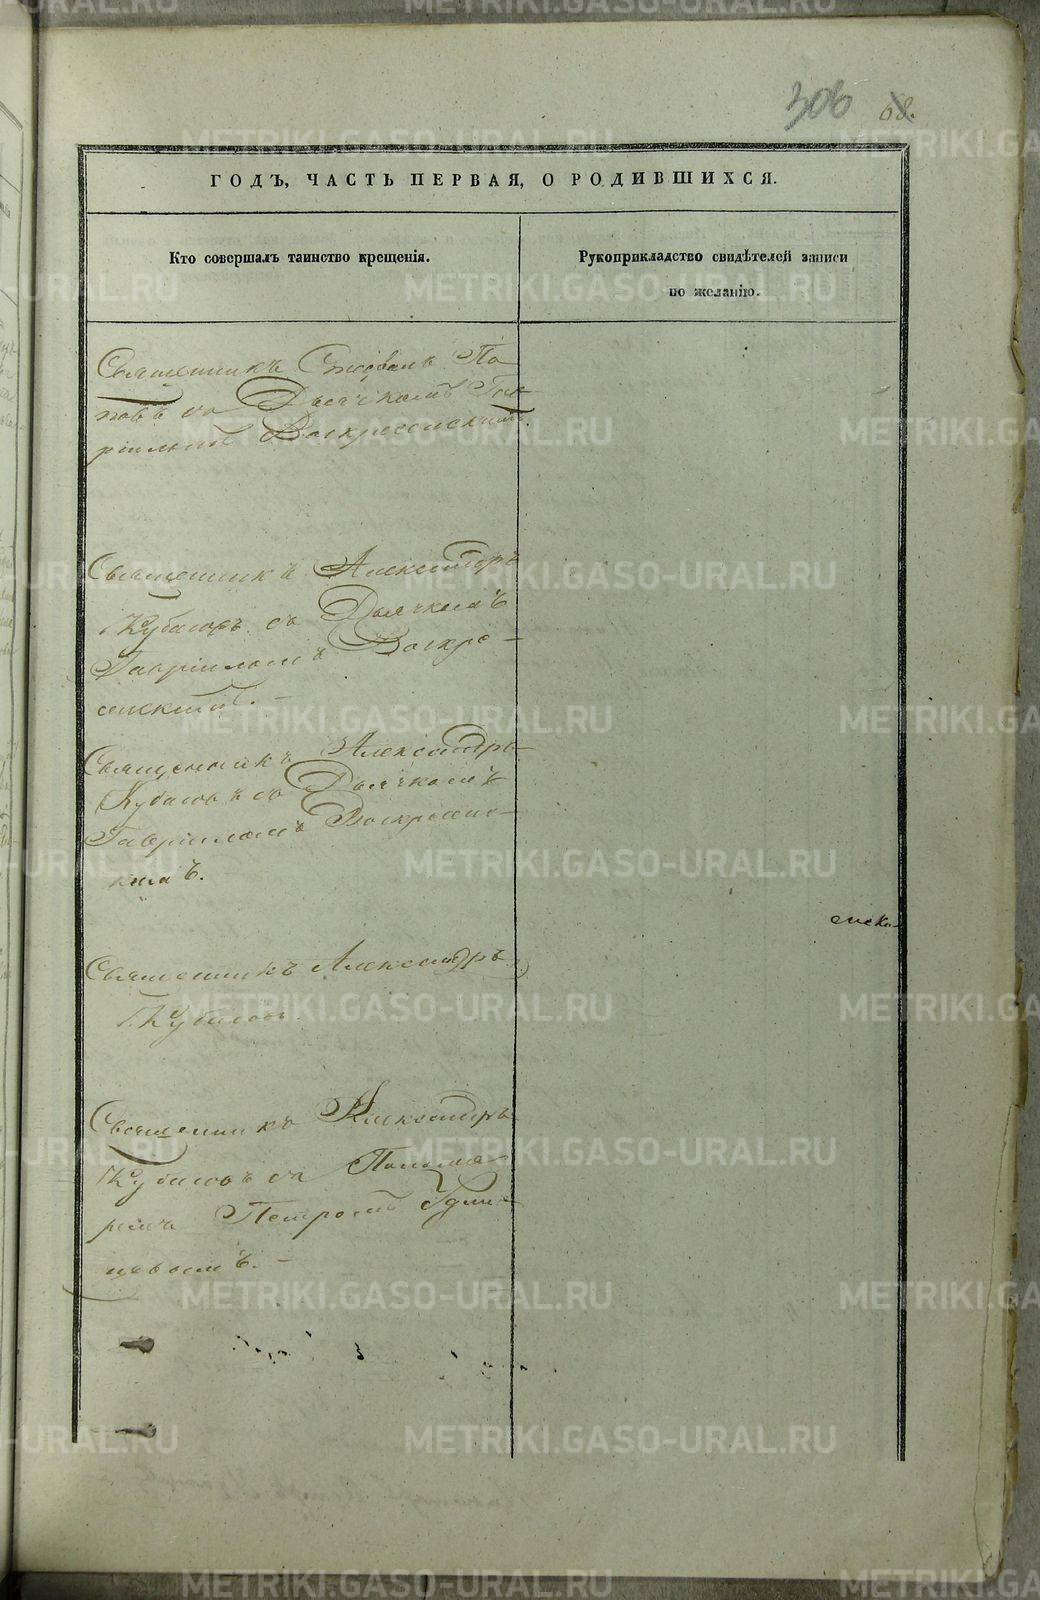 306 68.
ГОДЪ, ЧАСТЬ ПЕРВАЯ, О РОДИВШИХСЯ.
Кто совершалъ таинство крещенія.
Рукоприкладство свидѣтелей записи
по желанію.
Священникъ Стефанъ По
повъ съ Дьячкомъ Гав
ріиломъ Воскресенскимъ.
Священникъ Александръ
Кубасовъ съ Дьячкомъ
Гавріиломъ Воскре-
сенскимъ.-
Священникъ Александръ
Кубасовъ съ Дьячкомъ
Гавріиломъ Воскресенс-
кимъ.
Священникъ Александръ
Кубасовъ.
Священникъ Александръ
Кубасовъ съ Понома-
ремъ Петромъ Удин-
цовымъ.-
METRIKI.GASO-URAL.RU